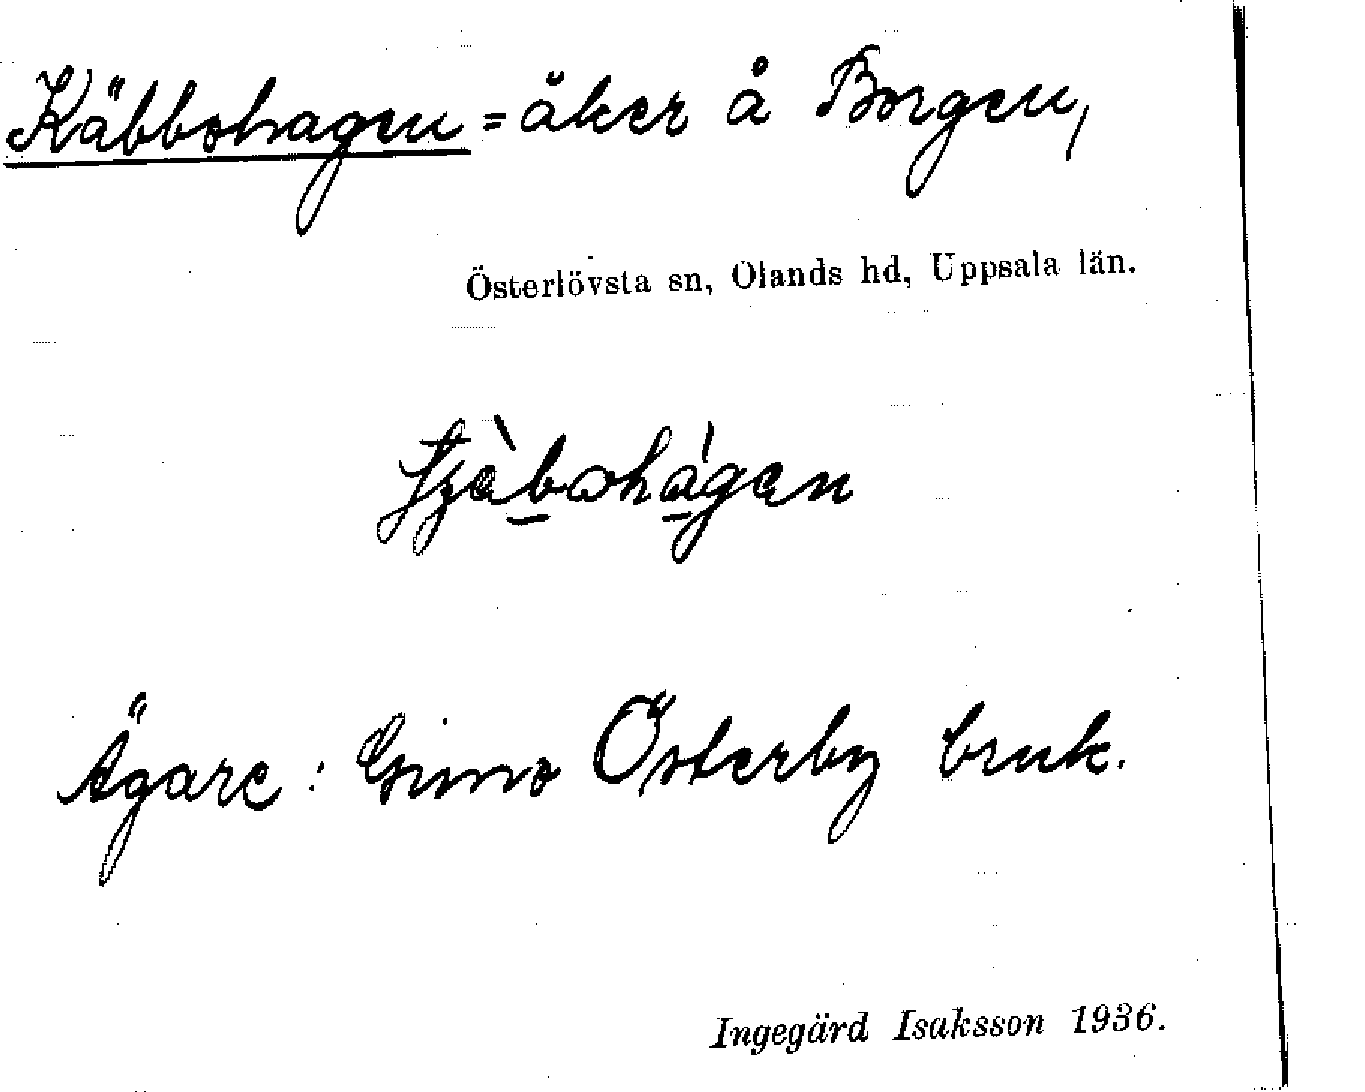 Käbbohagen = åker å Borgen,
Österlövsta sn, Olands hd, Uppsala län.
Ägare: Gimo Österby bruk.
Ingegärd Isaksson 1936.